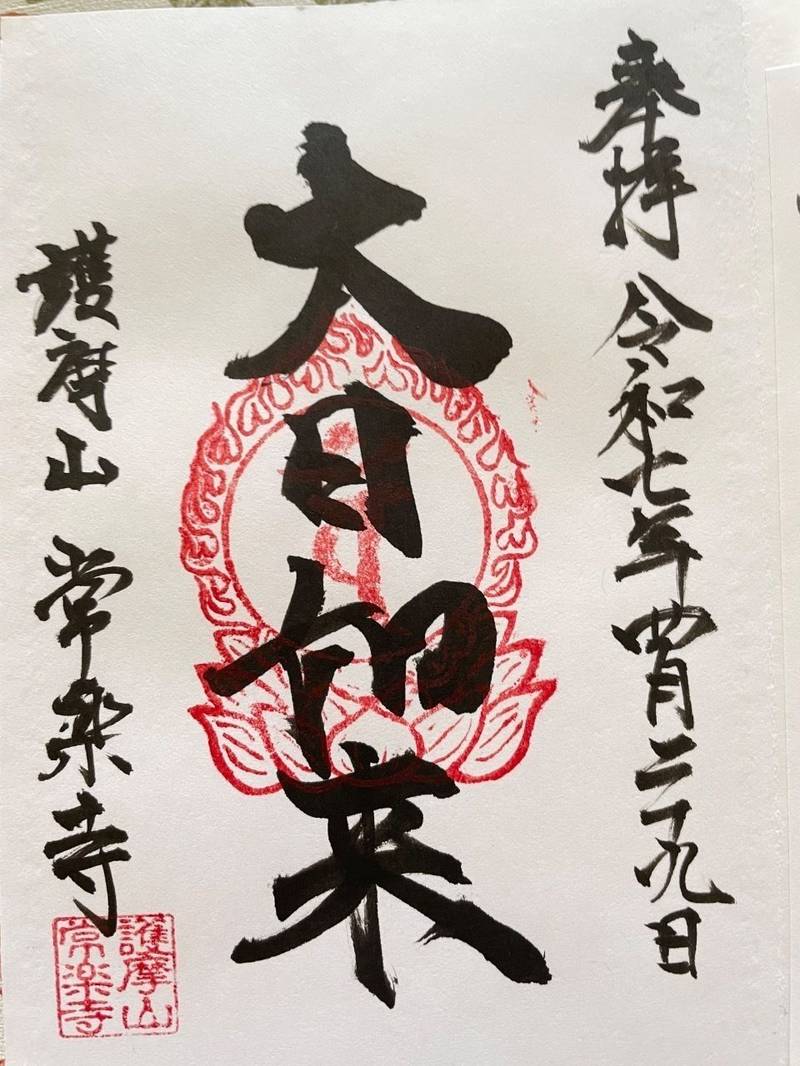 奉拝 令和七年四月二十九日
大日如来
護摩山 常楽寺
護摩山
常楽寺